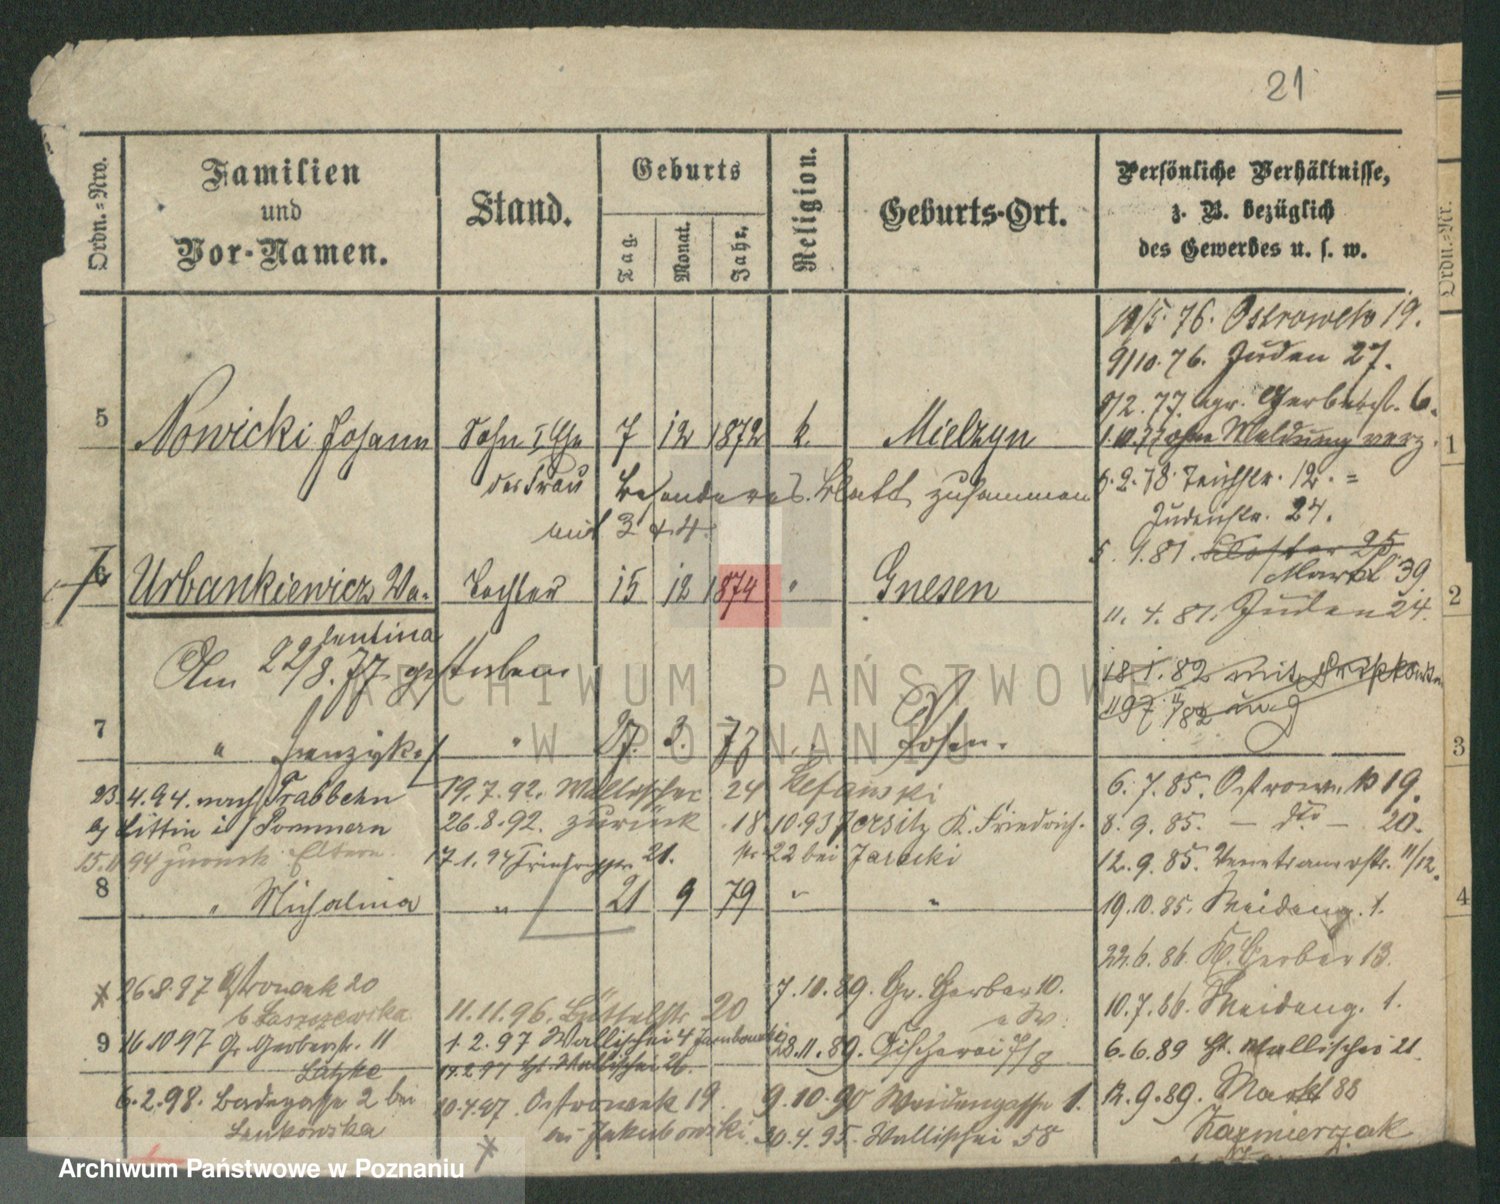 21
Ordn.=Nro.
Familien
und
Vor-Namen.
Stand.
Geburts
Tag.
Monat.
Jahr.
Religion.
Geburts-Ort.
Persönliche Verhältnisse,
z. B. bezüglich
des Gewerbes u. s. w.
Ordn.=Nr.
5 Nowicki Johann Sohn I Ehe 7 12 1872 k. Mielzyn
der Frau besonderes Blatt zusammen
mit 3 & 4.
6 Urbankiewicz Va- Tochter 15 12 1874 " Gnesen
lentina
Am 22/8. 77 gestorben
7 " Franziska " 27. 2. 77 " Posen.
23.4.94. nach Trabbehn
Littin i/ Pommern
15. 11 94 zurück Eltern
19.7.92. Wallischei 24
26.8.92. zurück 18.10.93 Jersitz K. Friedrich-
17.1.94 21. str. 22 bei Jarecki
8 " Michalina " 21 9 79 " "
26.8.97 Ostrowek 20
b Laszzewska
9 16.10 97 Gr. Gerberstr. 11
Latzke
6.2.98. Badegasse 2 bei
Lenkowska
11.11.96. Büttelstr 20
1.2.97 Wallischei 4
17.2.97 Wallischei 26.
10.4.97 Ostrowek 19
bei Jakubowski
7.10.89. Gr. Gerber 10.
28.11.89. Fischerei 7/8
9.10.90 Weidengasse 1.
30.4.95. Wallischei 58
19/5. 76. Ostrowek 19.
9/10.76. Juden 27.
9/2. 77. gr. Gerberst. 6.
1.10.77 ohne Meldung verz.
6.2.78. Teichstr. 12. =
Judenstr. 24.
5. 1.81. Kloster 25
Markt 39
11. 4. 81. Juden 24.
18.1.82 mit
6.7.85. Ostrow.k 19.
8.9.85. — dto — 20.
12.9.85. Venetianerstr. 11/12.
19.10.85. Weideng. 1.
22.6.86. Kl. Gerber 13.
10.7.86. Weideng. 1.
6.6.89 Wallischei 21.
12.9.89. Markt 88
Kazmierczak
1
2
3
4
ARCHIWUM PAŃSTWOWE
W POZNANIU
Archiwum Państwowe w Poznaniu